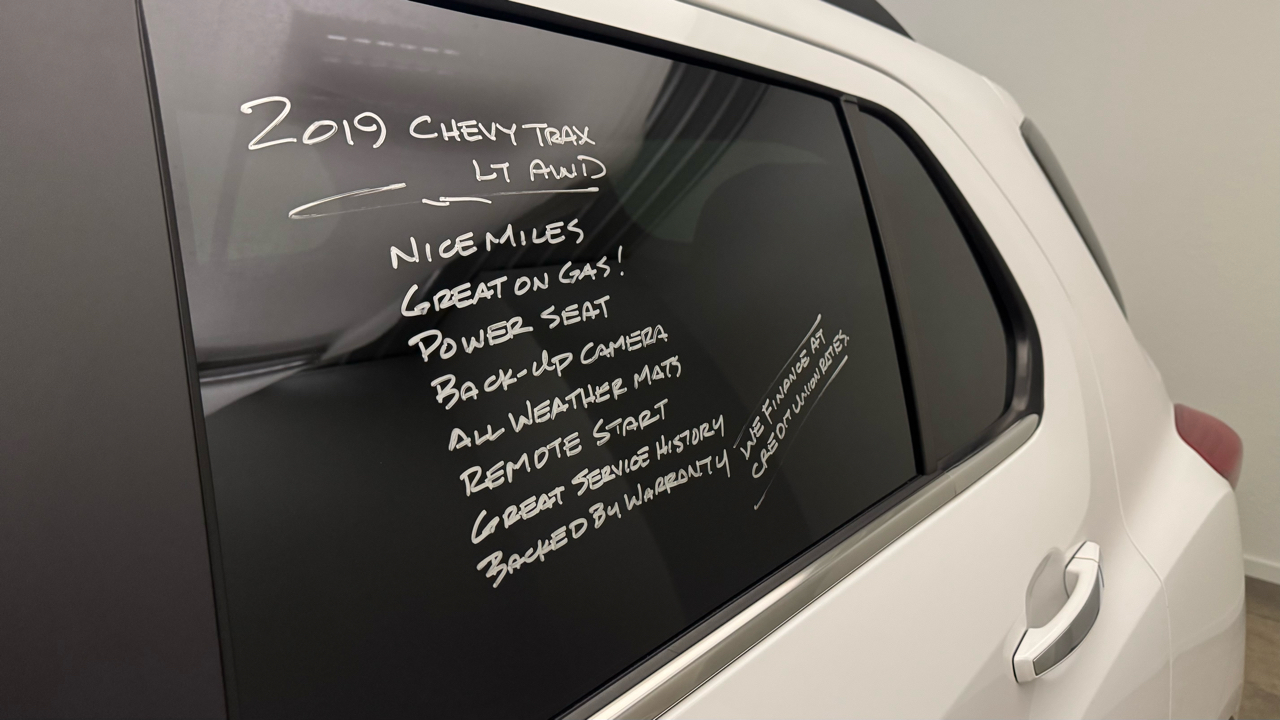 2019 CHEVY TRAX
LT AWD
NICE MILES
GREAT ON GAS!
POWER SEAT
BACK-UP CAMERA
ALL WEATHER MATS
REMOTE START
GREAT SERVICE HISTORY
BACKED BY WARRONTY
WE FINANCE AT
CREDIT UNION RATES.